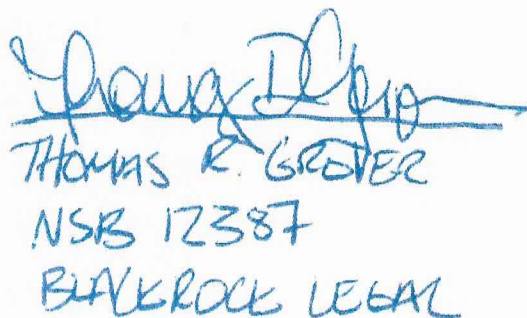 THOMAS R. GROVER
NSB 12387
BLACKROCK LEGAL